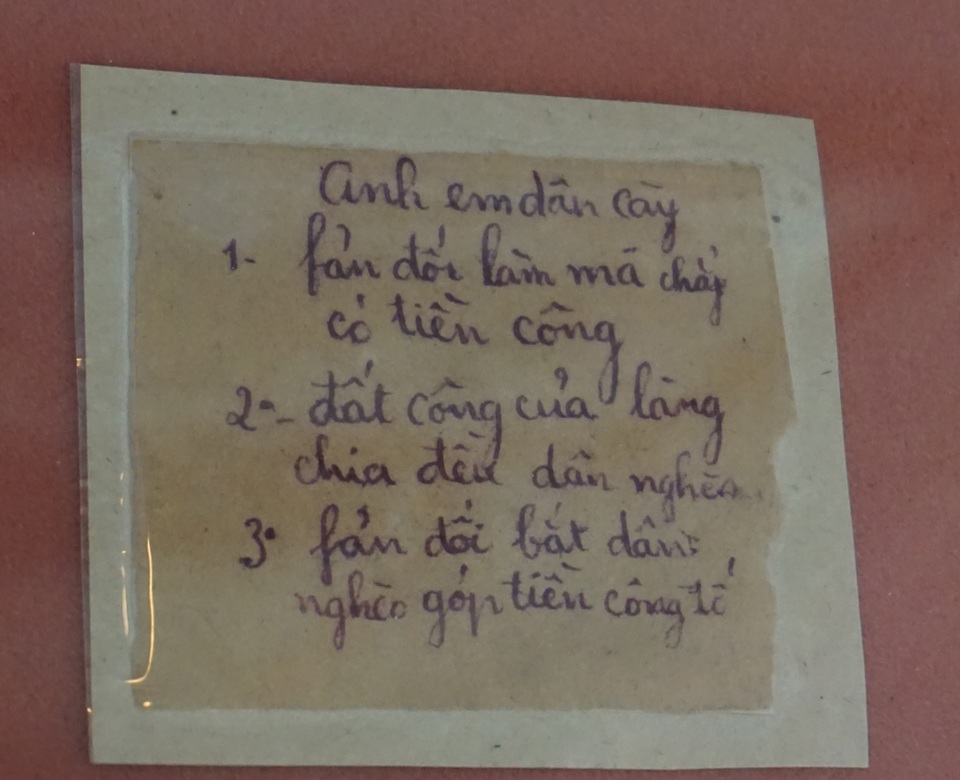 Anh em dân cày
1- fản đối làm mà chẳng
có tiền công
2°- đất công của làng
chia đều dân nghèo
3° fản đối bắt dân
nghèo góp tiền công